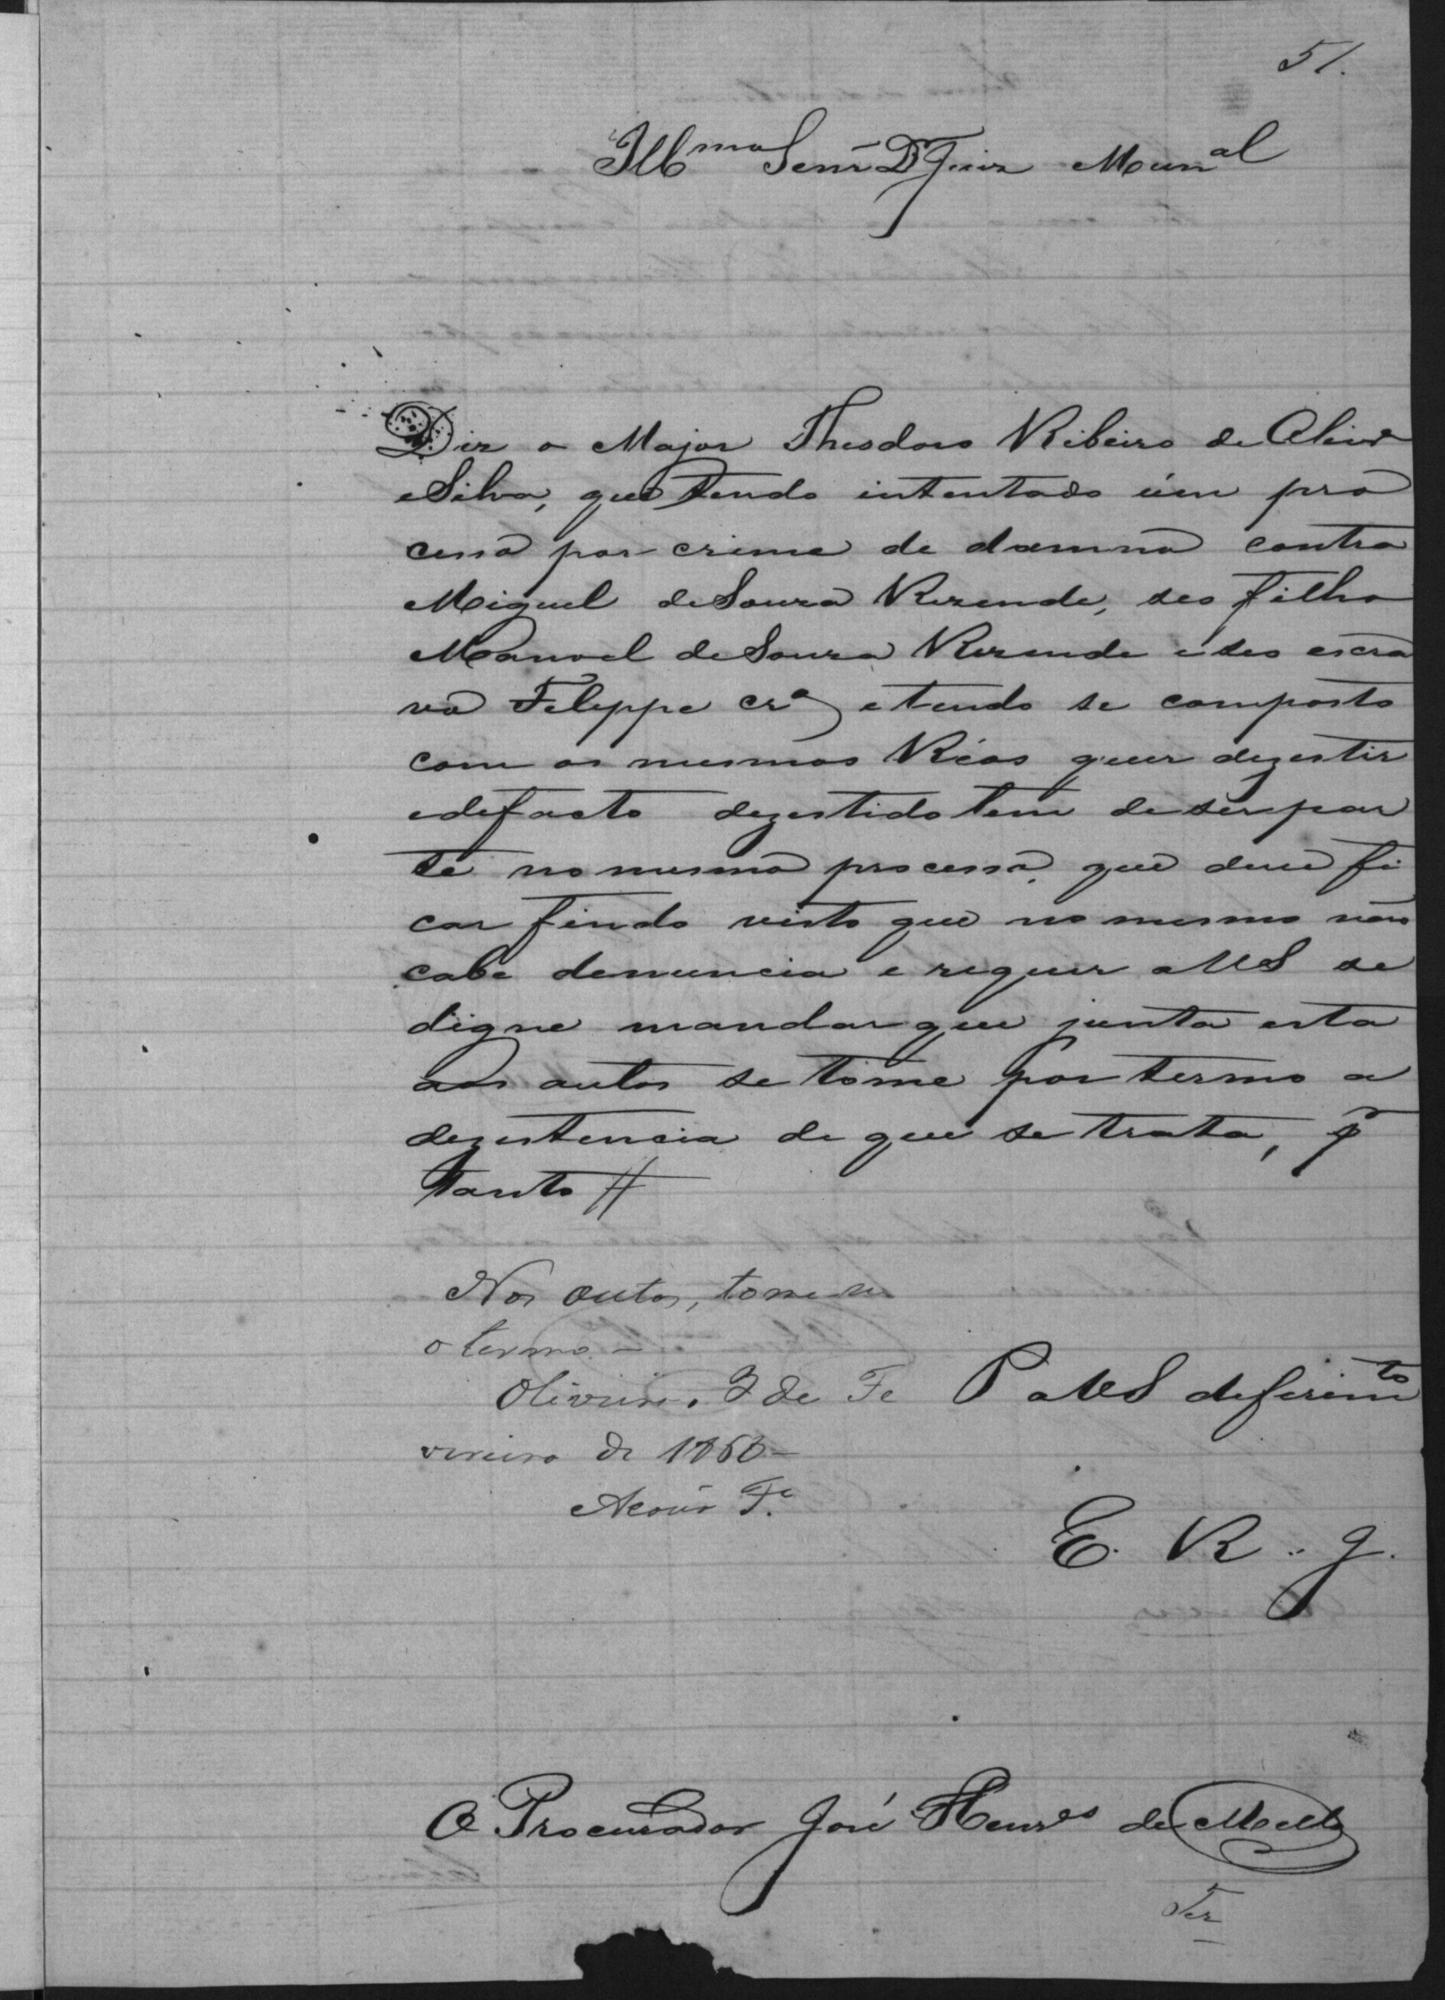 51.
Illmo Senr Dr Juiz Munal
Diz o Major Theodoro Ribeiro de Olivra
e Silva, que tendo intentado úm pro
cesso por crime de damno contra
Miguel de Souza Rezende, seo filho
Manoel de Souza Rezende e seo escra
vo Felippe cro, e tendo se composto
com os mesmos Réos quer dezestir
e de facto dezestido tem de ser par
te no mesmo processo, que deve fi
car findo visto que no mesmo não
cabe denuncia e requer a VS se
digne mandar que junta esta
aos autos se tome por termo a
dezestencia de que se trata, p
tanto //
Nos autos, tome-se
o termo –
Oliveira, 3 de Fe
vereiro de 1860 –
P a VS deferimto
E. R. J.
O Procurador José Henrs de Mello
Ter